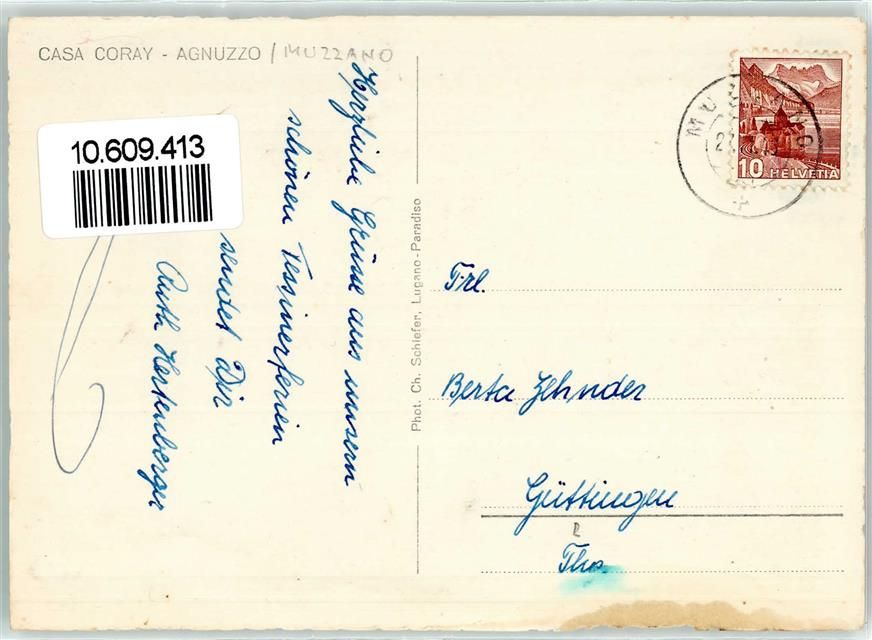 CASA CORAY - AGNUZZO / MUZZANO
10.609.413
Herzliche Grüsse aus unsern
schönen Tessinerferien
sendet Dir
Ruth Hertenberger
Phot. Ch. Schiefer, Lugano-Paradiso
MUZZANO
10 HELVETIA
Frl.
Berta Zehnder
Güttingen
Thg.